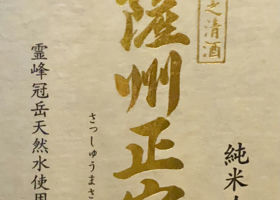 純米
之清酒
薩州正宗
さっしゅうまさ
霊峰冠岳天然水使用